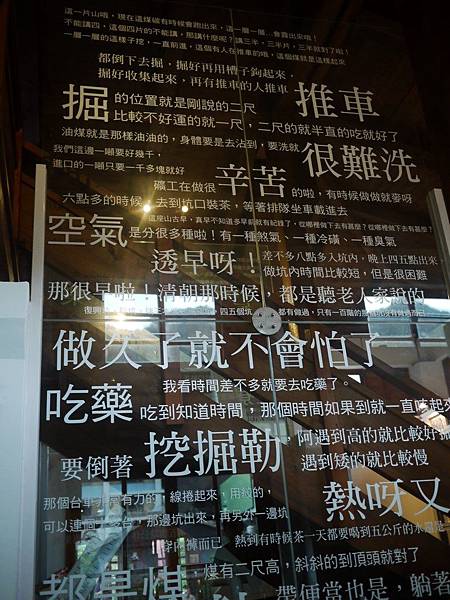 這一片山哦，現在這煤碳有時候會跑出來，這一層一層…會露出來啦！
不能講四，這個四片的不能講，那講什麼呢？講三半，三半片，三半就對了啦！
一層一層的這樣子挖，一直前進，這個有人在推車的哦，這個煤就是這樣起來
都倒下去掘，掘好再用槽子鉤起來，
掘好收集起來，再有推車的人推車
推車
掘的位置就是剛說的二尺
比較不好運的就一尺，二尺的就半直的吃就好了
油煤就是那樣油油的，身體要是去沾到，要洗就
很難洗
我們這邊一噸要好幾千，
進口的一噸只要一千多塊就好
礦工在做很辛苦的啦，有時候做做就麥呀
六點多的時候，去到坑口裝茶，等著排隊坐車載進去
這座山古早，真早不知道多早前就有紀錄了，從哪裡做下去有甚麼？從哪裡做下去有甚麼？
空氣是分很多種啦！有一種煞氣、一種冷磺、一種臭氣
透早呀！
差不多八點多入坑內，晚上四五點出來，
做坑內時間比較短，但是很困難
那很早啦！清朝那時候，都是聽老人家說的
四五個坑
都有做過，只有一百階的
做久了就不會怕了
我看時間差不多就要去吃藥了。
吃藥
吃到知道時間，那個時間如果到就一直咳起來
要倒著挖掘勒，阿遇到高的就比較好掘
遇到矮的就比較慢
那個台車
有力的，線捲起來，用絞的，
可以連個十多台，那邊坑出來，再另外一邊坑
熱呀又
穿內褲而已，熱到有時候茶一天都要喝到五公斤的水還是
都是煤，煤有二尺高，斜斜的到頂頭就對了
帶便當也是，躺著